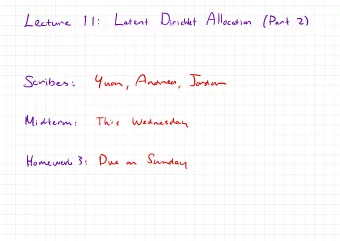 Lecture 11: Latent Dirichlet Allocation (Part 2)
Scribes: Yuan, Andrea, Jordan
Midterm: This Wednesday
Homework 3: Due on Sunday